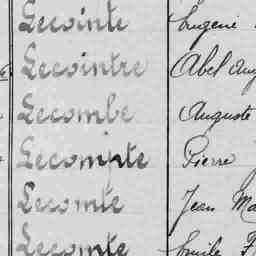 Lecointe Eugène
Lecointre Abel
Lecombe Auguste
Lecompte Pierre
Lecomte Jean
Lecomte Emile